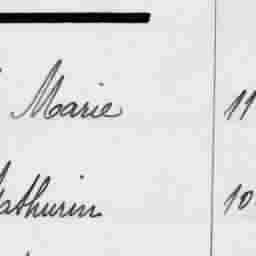 Marie 11
Mathurin 10